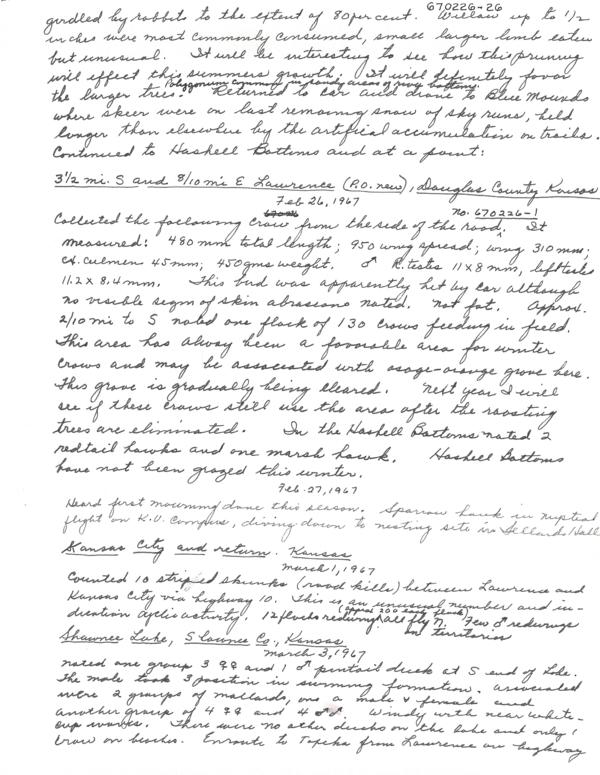 670226-26
girdled by rabbits to the extent of 80 per cent. Willow up to 1/2
inches were most commonly consumed, small larger limb eaten
but unusual. It will be interesting to see how this pruning
will effect this summers growth. It will definitely favor
Polygonum common in sandy areas of river bottoms.
the larger trees. Returned to car and drove to Blue Mounds
where skier were on last remaining snow of sky runs, held
longer than elsewhere by the artifical accumulation on trails.
Continued to Haskell Bottoms and at a point:
3 1/2 mi. S and 8/10 mi E Lawrence (P.O. new), Douglas County Kansas
Feb 26, 1967
no. 670226-1
Collected the following crow from the side of the road. It
measured: 480 mm total length; 950 wing spread; wing 310 mm;
ex. culmen 45 mm; 450 gms weight. ♂ R. testes 11 x 8 mm, left testes
11.2 x 8.4 mm. This bird was apparently hit by car although
no visible segm of skin abrasions noted. not fat. Approx.
2/10 mi to S noted one flock of 130 crows feeding in field.
This area has alway been a favorable area for winter
crows and may be associated with osage-orange grove here.
This grove is gradually being cleared. Next year I will
see if these crows still use the area after the roosting
trees are eliminated. In the Haskell Bottoms noted 2
redtail hawks and one marsh hawk. Haskell Bottoms
have not been grazed this winter.
Feb. 27, 1967
Heard first mourning dove this season. Sparrow hawk in nuptial
flight on K.U. Campus, diving down to nesting site in Hall
Kansas City and return. Kansas
March 1, 1967
Counted 10 striped skunks (road kills) between Lawrence and
Kansas City via highway 10. This is an unusual number and in-
(approx 200 each flock)
dication cyclic activity. 12 flocks redwing all fly N. Few ♂ redwings
on territories
Shawnee Lake, Shawnee Co., Kansas
March 3, 1967
noted one group 3 ♀♀ and 1 ♂ pintail duck at S end of Lake.
The male took 3 position in swimming formation. associated
were 2 groups of mallards, one a male & female and
another group of 4 ♀♀ and 4 ♂♂. Windy with near white-
cap waves. There were no other ducks on the lake and only 1
crow on beaches. Enroute to Topeka from Lawrence on highway